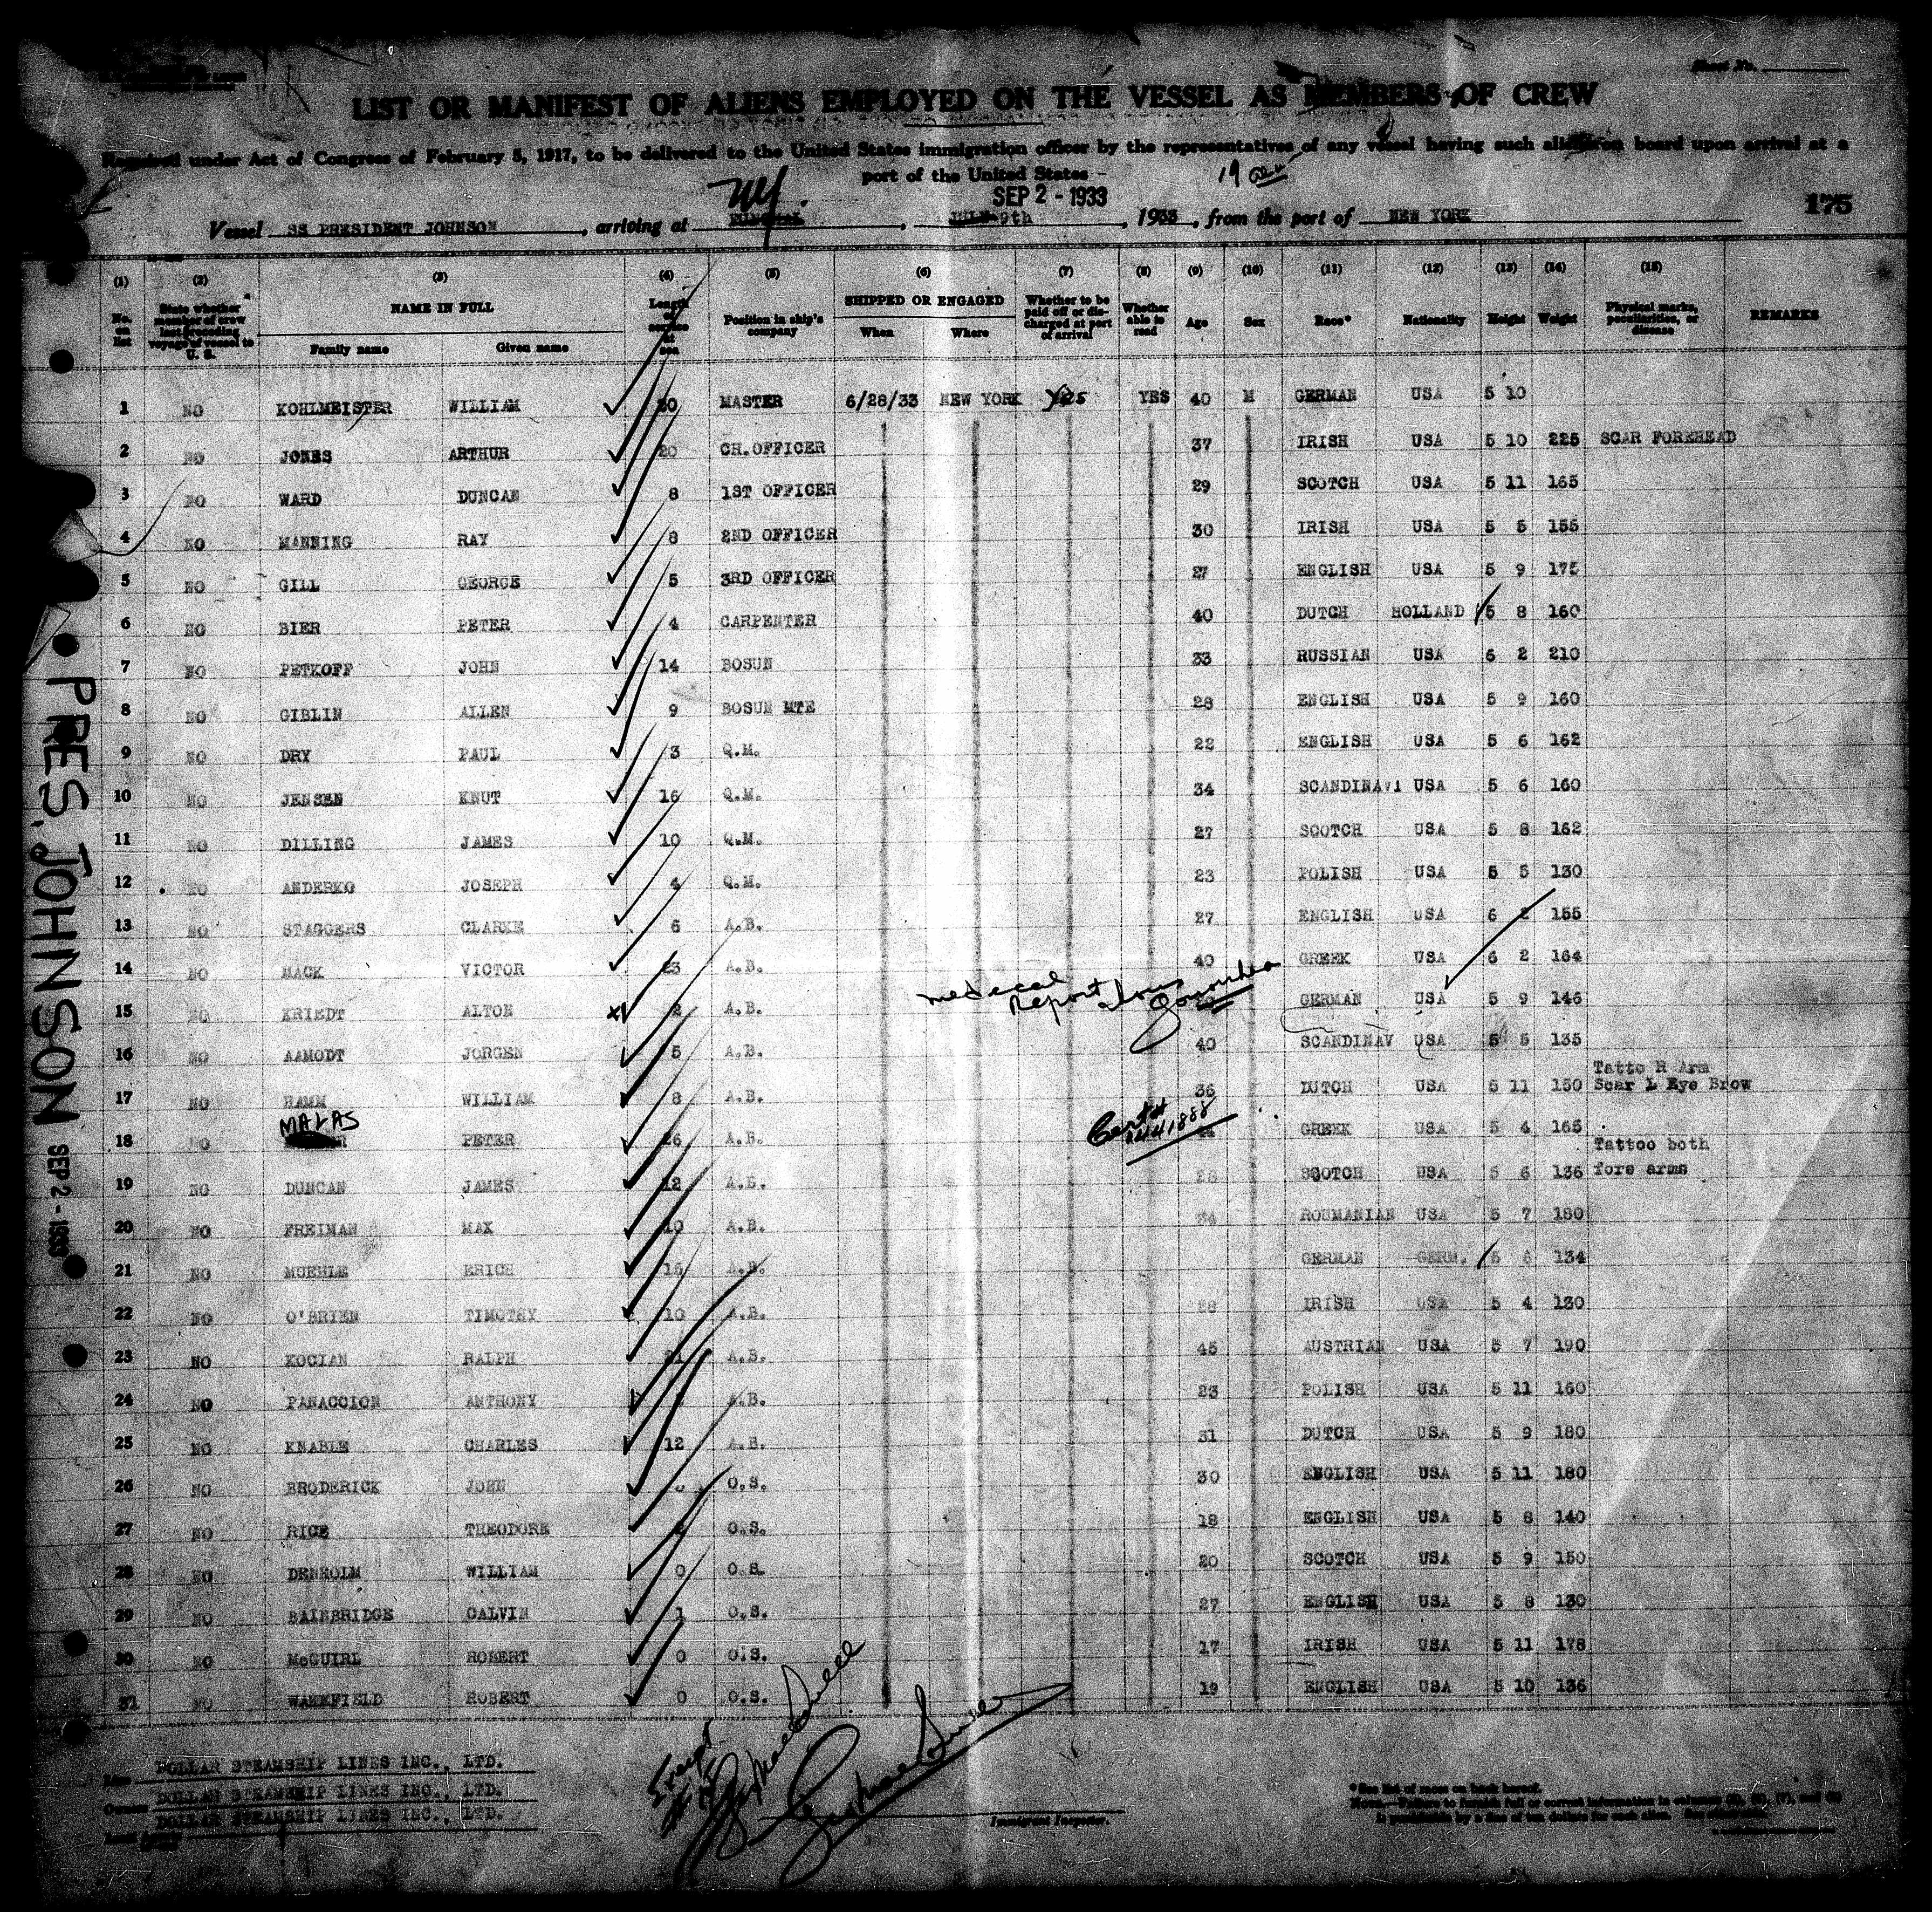 Sheet No.
LIST OR MANIFEST OF ALIENS EMPLOYED ON THE VESSEL AS MEMBERS OF CREW
Required under Act of Congress of February 5, 1917, to be delivered to the United States immigration officer by the representatives of any vessel having such aliens on board upon arrival at a
port of the United States
SEP 2 - 1933
175
Vessel SS PRESIDENT JOHNSON, arriving at NY. JULY 9th, 1933, from the port of NEW YORK
(1) (2) (3) (4) (5) (6) (7) (8) (9) (10) (11) (12) (13) (14) (15)
No. on list State whether member of crew last preceding voyage of vessel to U. S. NAME IN FULL Family name Given name Length of service at sea Position in ship's company SHIPPED OR ENGAGED When Where Whether to be paid off or discharged at port of arrival Whether able to read Age Sex Race* Nationality Height Weight Physical marks, peculiarities, or disease REMARKS
1 NO KOHLMEISTER WILLIAM 20 MASTER 6/28/33 NEW YORK Yes YES 40 M GERMAN USA 5 10
2 NO JONES ARTHUR 20 CH.OFFICER 37 IRISH USA 5 10 225 SCAR FOREHEAD
3 NO WARD DUNCAN 8 1ST OFFICER 29 SCOTCH USA 5 11 165
4 NO MANNING RAY 8 2ND OFFICER 30 IRISH USA 5 5 155
5 NO GILL GEORGE 5 3RD OFFICER 27 ENGLISH USA 5 9 175
6 NO BIER PETER 4 CARPENTER 40 DUTCH HOLLAND 5 8 160
7 NO PETKOFF JOHN 14 BOSUN 33 RUSSIAN USA 6 2 210
8 NO GIBLIN ALLEN 9 BOSUN MTE 28 ENGLISH USA 5 9 160
9 NO DRY PAUL 3 Q.M. 22 ENGLISH USA 5 6 162
10 NO JENSEN KNUT 16 Q.M. 34 SCANDINAVI USA 5 6 160
11 NO DILLING JAMES 10 Q.M. 27 SCOTCH USA 5 8 162
12 NO ANDERKO JOSEPH 4 Q.M. 23 POLISH USA 5 5 130
13 NO STAGGERS CLARKE 6 A.B. 27 ENGLISH USA 6 2 155
14 NO MACK VICTOR 23 A.B. 40 GREEK USA 6 2 164
medecal Report shows Gonorrhea
15 NO KRIEDT ALTON 2 A.B. GERMAN USA 5 9 146
16 NO AAMODT JORGEN 5 A.B. 40 SCANDINAV USA 5 5 135
17 NO HAMM WILLIAM 8 A.B. 36 DUTCH USA 5 11 150 Tatto R Arm Scar L Eye Brow
18 NO MALAS PETER 26 A.B. GREEK USA 5 4 165
19 NO DUNCAN JAMES 12 A.B. 28 SCOTCH USA 5 6 136 Tattoo both fore arms
20 NO FREIMAN MAX 10 A.B. ROUMANIAN USA 5 7 180
21 NO MUEHLE ERICH 15 A.B. GERMAN GERM. 134
22 NO O'BRIEN TIMOTHY 10 A.B. IRISH USA 5 4 130
23 NO KOCIAN RALPH 21 A.B. 45 AUSTRIAN USA 5 7 190
24 NO PANACCION ANTHONY A.B. 23 POLISH USA 5 11 160
25 NO KNABLE CHARLES 12 A.B. 31 DUTCH USA 5 9 180
26 NO BRODERICK JOHN O.S. 30 ENGLISH USA 5 11 180
27 NO RICE THEODORE O.S. 18 ENGLISH USA 5 8 140
28 NO DENHOLM WILLIAM 0 O.S. 20 SCOTCH USA 5 9 150
29 NO BAINBRIDGE CALVIN 1 O.S. 27 ENGLISH USA 5 8 130
30 NO McGUIRL ROBERT 0 O.S. 17 IRISH USA 5 11 178
31 NO WAKEFIELD ROBERT 0 O.S. 19 ENGLISH USA 5 10 136
PRES. JOHNSON SEP 2 - 1933
Line DOLLAR STEAMSHIP LINES INC., LTD.
Owners DOLLAR STEAMSHIP LINES INC., LTD.
DOLLAR STEAMSHIP LINES INC., LTD.
Immigrant Inspector.
*See list of races on back hereof.